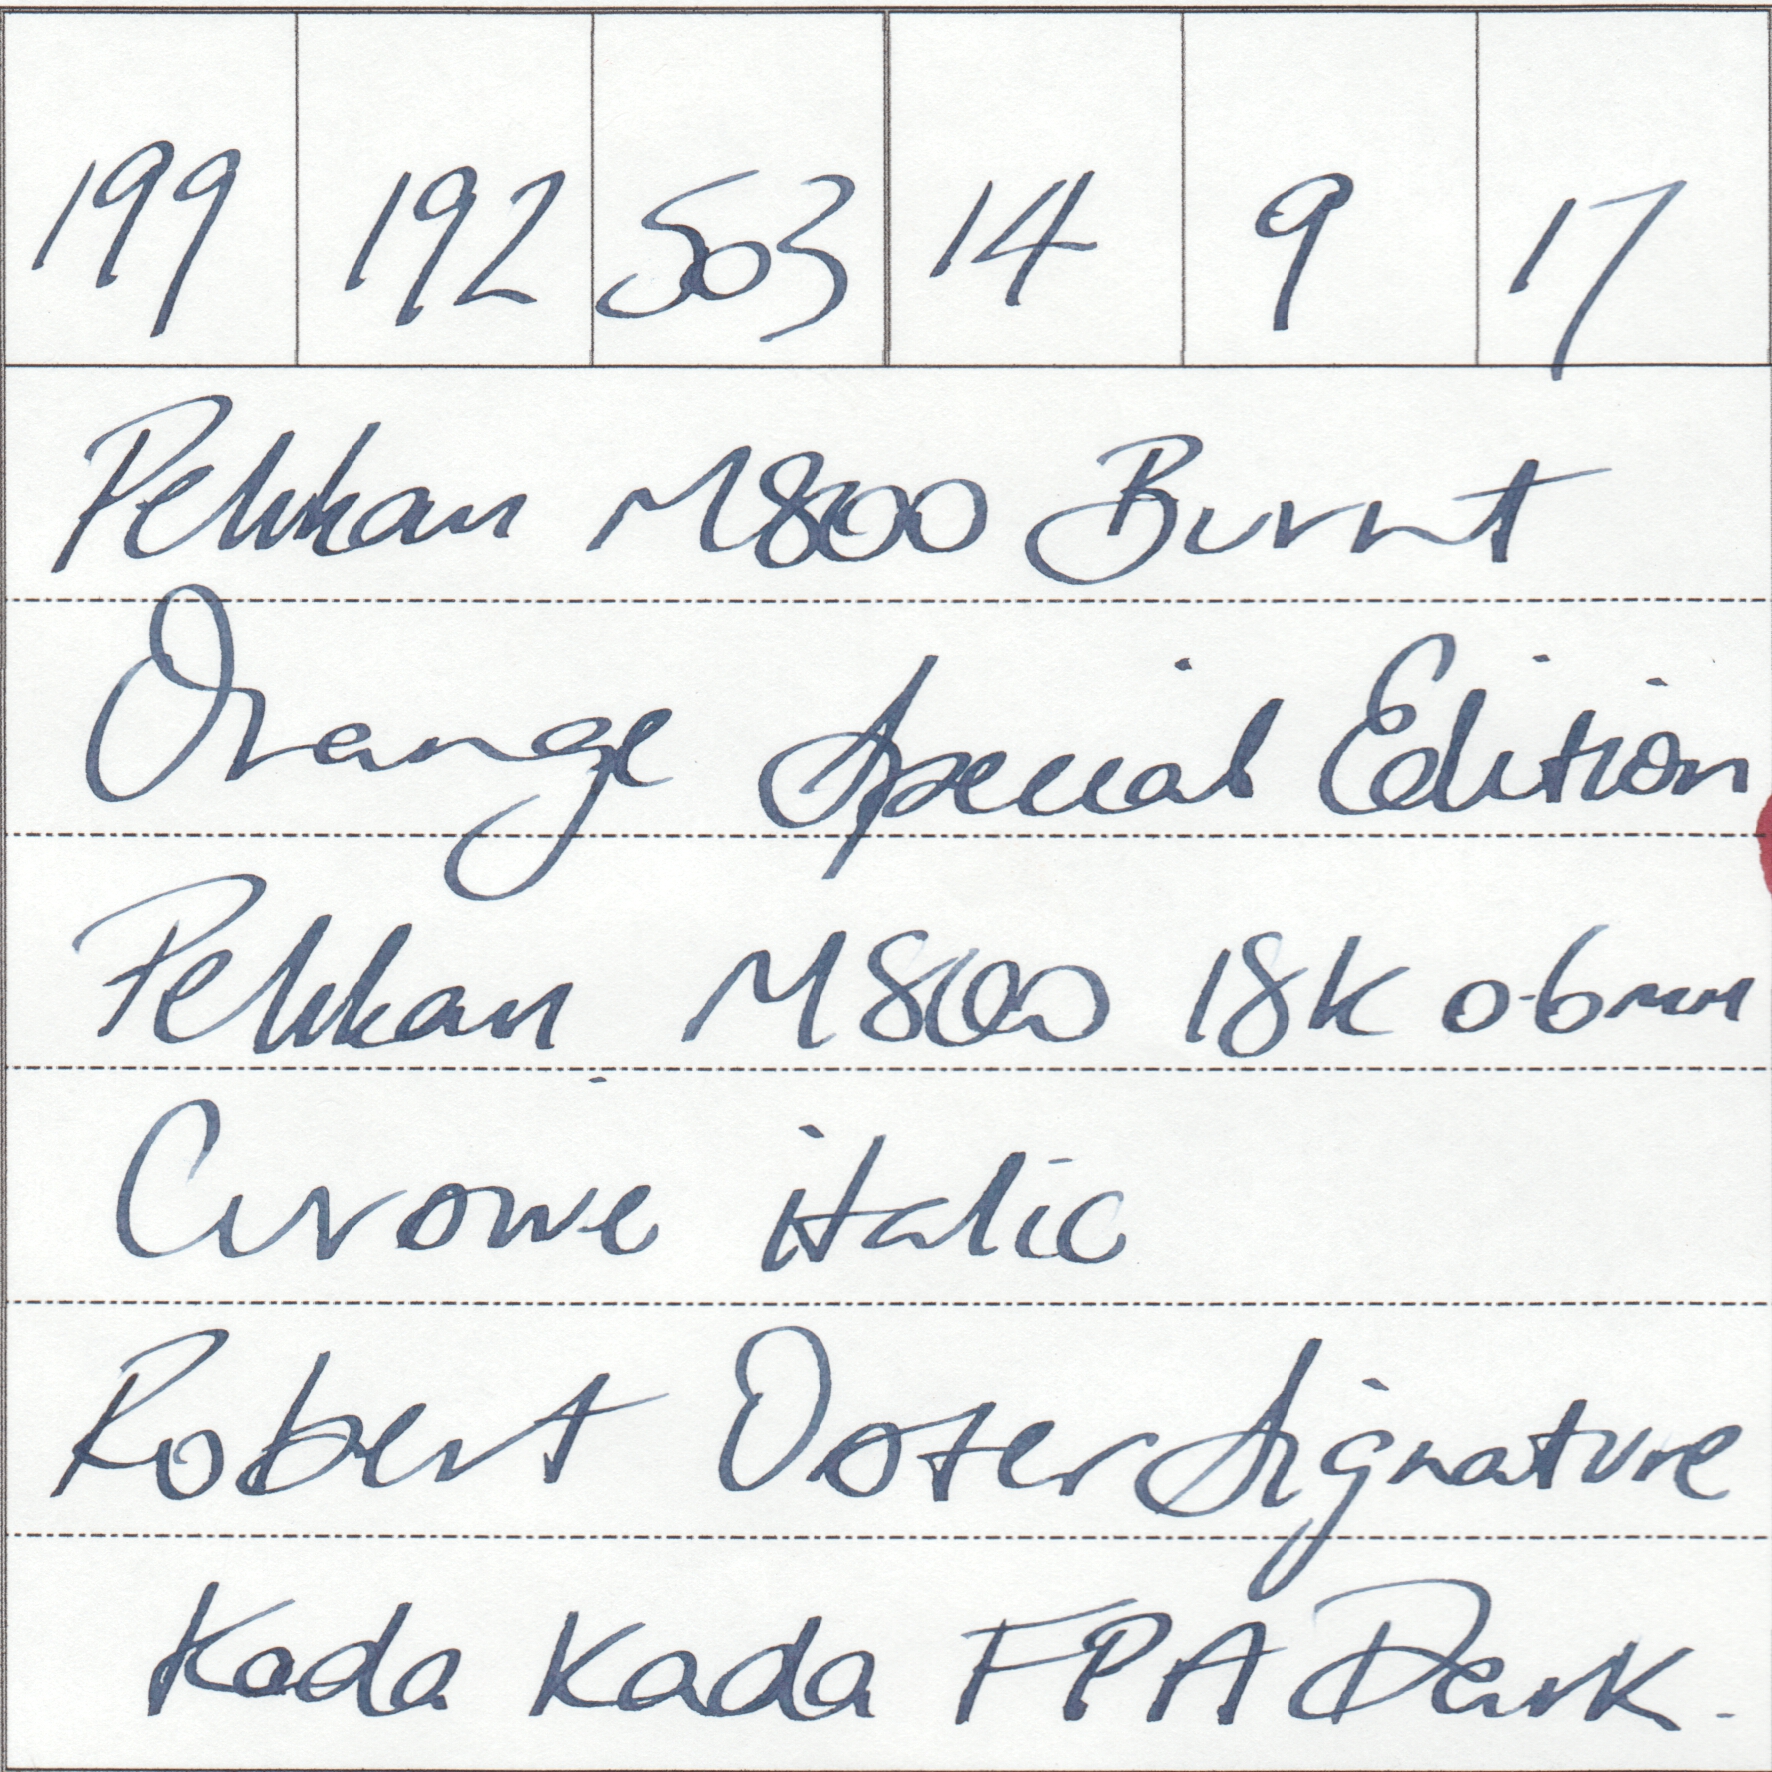 199 192 503 14 9 17
Pelikan M800 Burnt
Orange Special Edition
Pelikan M800 18K 0.6mm
Cursive italic
Robert Oster Signature
Kada Kada FPA Dark.